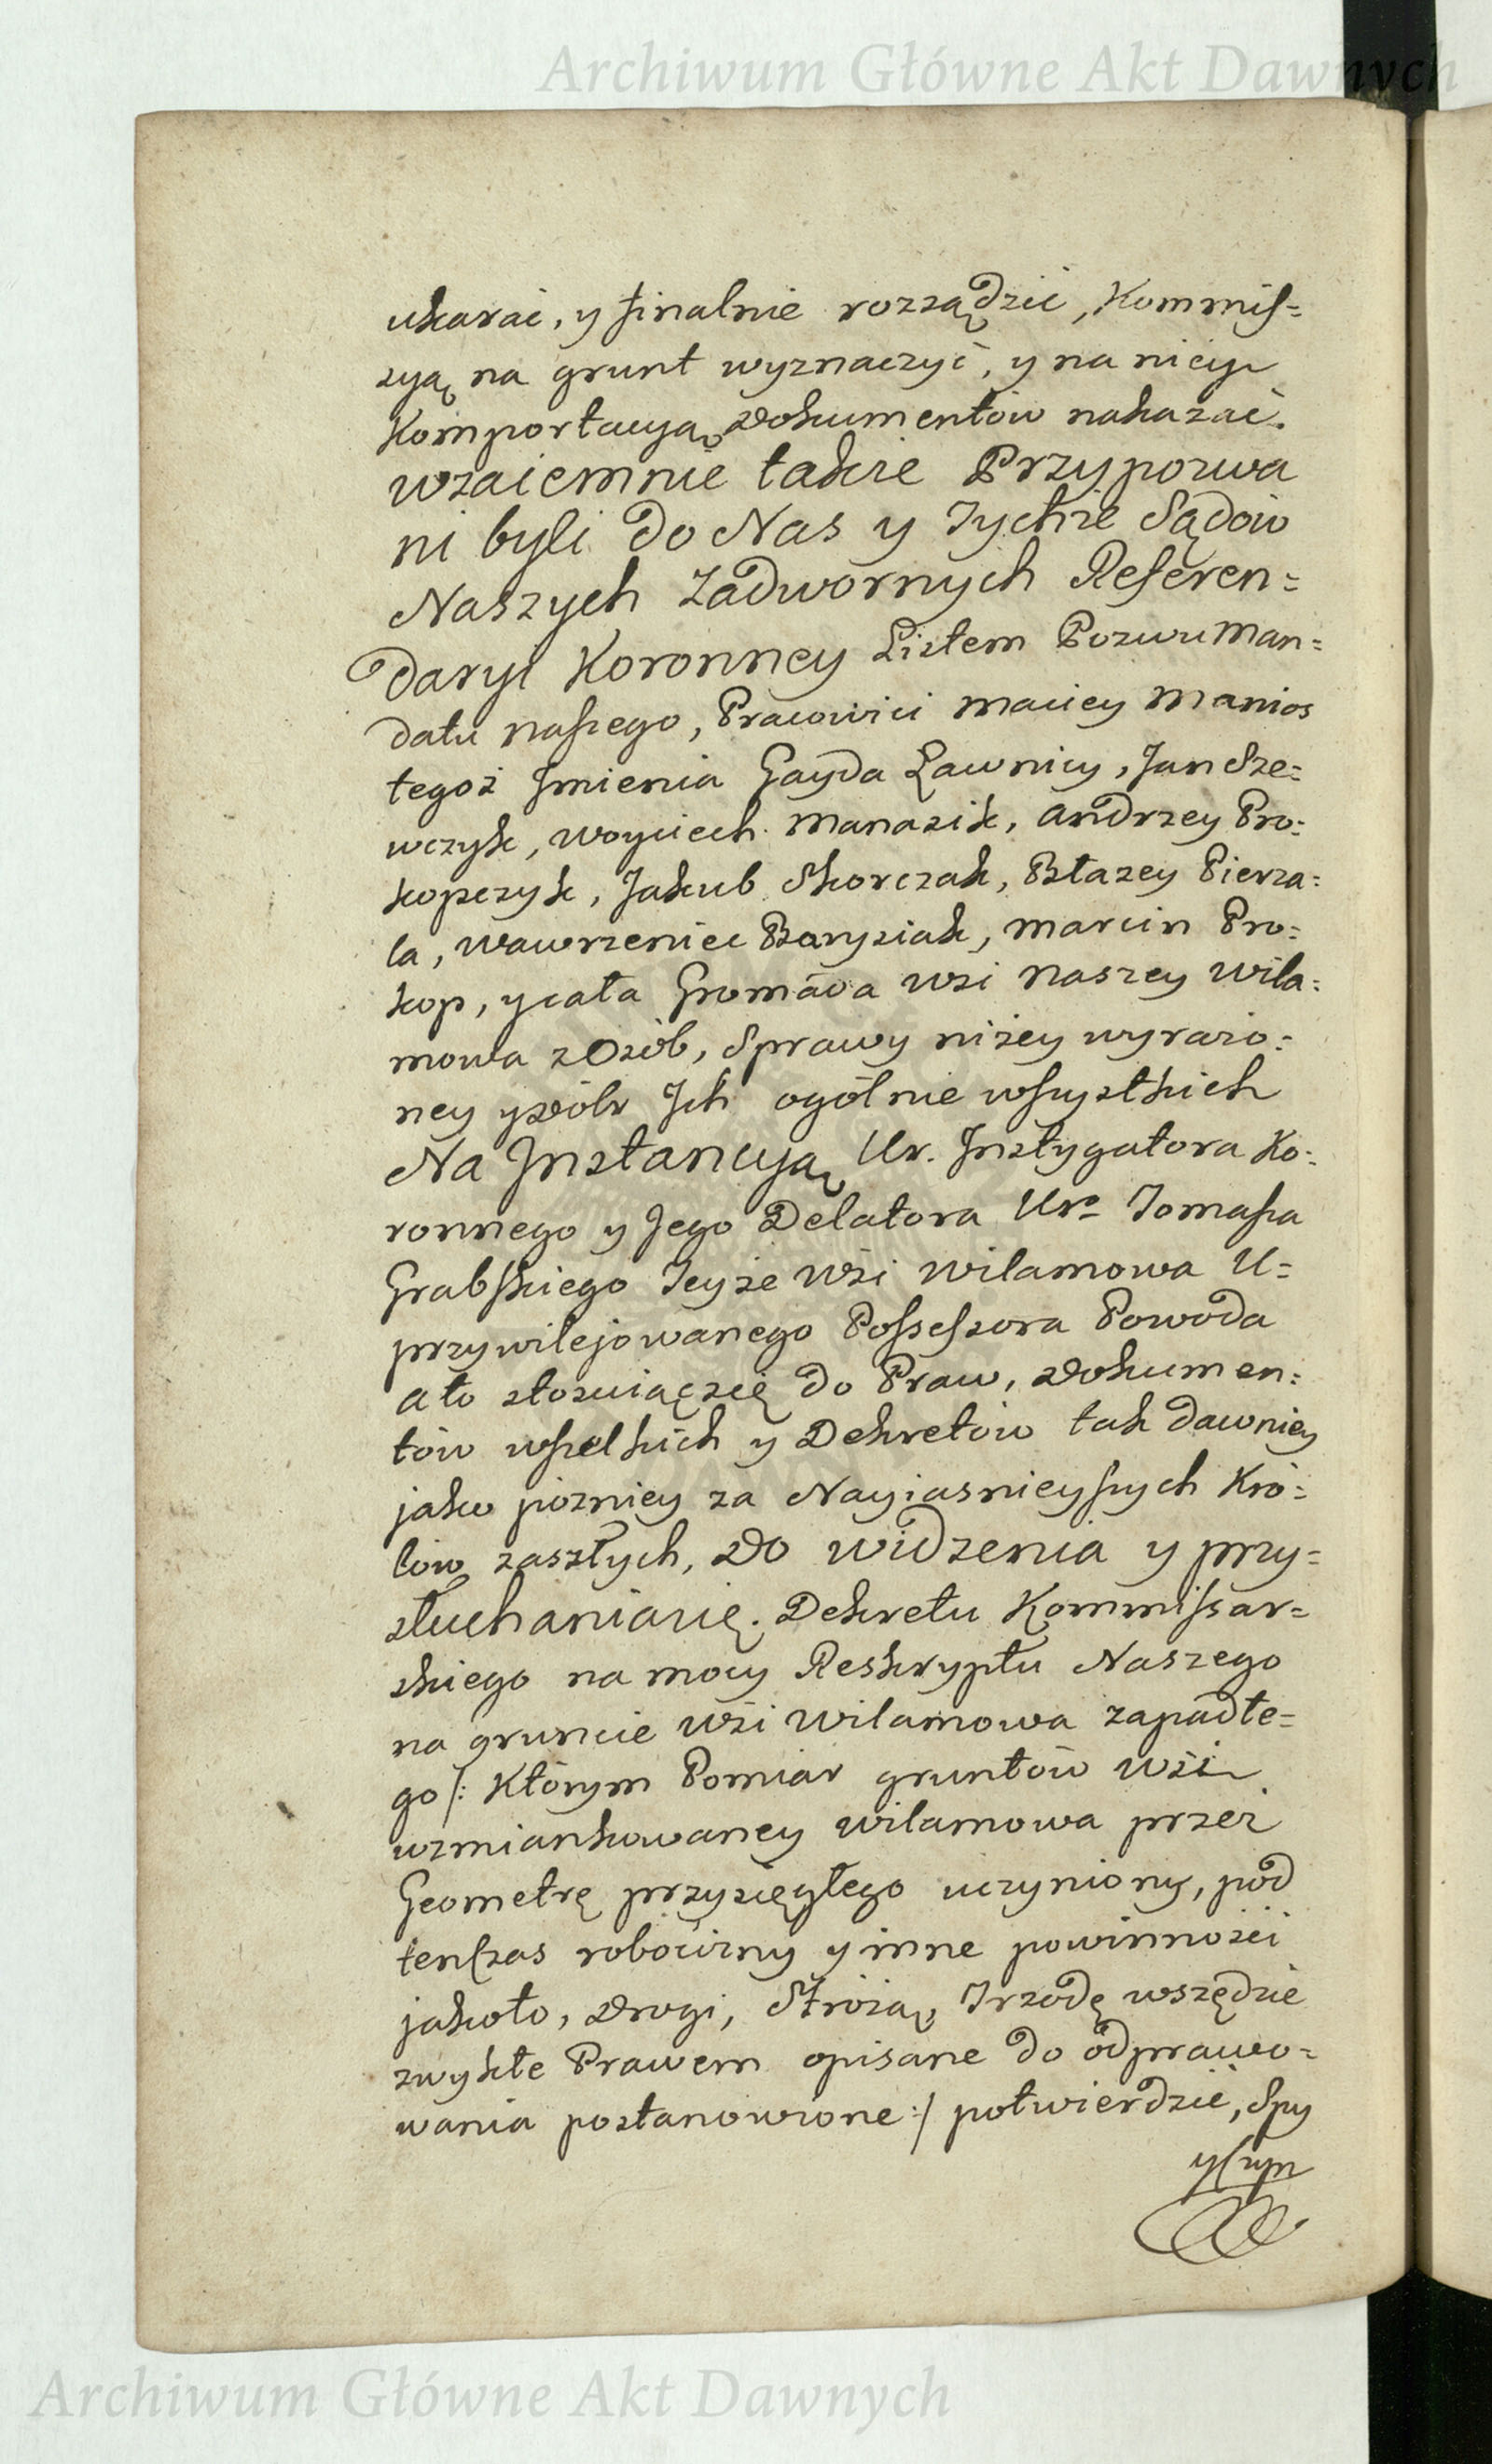 Archiwum Główne Akt Dawnych
ukarać, y finalnie rozsądzić, Kommis=
syą na grunt wyznaczyć, y na niey
Komportacyą Dokumentów nakazać.
wzaiemnie także Przypozwa
ni byli do Nas y Tychże Sądów
Naszych Zadwornych Referen=
daryi Koronney Listem Pozwu Man=
datu naszego, Pracowici Maciey Manios
tegoż Jmienia Gayda Ławnicy, Jan Sze=
wczyk, Woyciech Manasik, Andrzey Pro=
kopczyk, Jakub Skorczak, Błazey Pierza=
la, Wawrzeniec Barysiak, Marcin Pro=
kop, y cała Gromada wsi Naszey Wila=
mowa z Osób, Sprawy niżey wyrażo=
ney y dóbr Jch ogólnie wszystkich
Na Jnstancyją Ur. Jnstygatora Ko=
ronnego y Jego Delatora Uro Tomasza
Grabskiego Teyże wsi Wilamowa U=
przywilejowanego Possessora Powoda
a to stosuiąc się do Praw, Dokumen=
tów wszelkich y Dekretów tak dawniey
jako pozniey za Nayiasnieyszych Kró=
lów zaszłych, Do widzenia y przy=
słuchania się. Dekretu Kommissar=
skiego na mocy Reskryptu Naszego
na gruncie wsi Wilamowa zapadłe=
go /: Którym Pomiar gruntów wsi
wzmiankowaney Wilamowa przez
Geometrę przysięgłego uczyniony, pod
tenczas robocizny y inne powinności
jako to, Drogi, Stróżą, Trzodę wszędzie
zwykłe Prawem opisane do odprawo=
wania postanowione :/ potwierdzić, Spy
Archiwum Główne Akt Dawnych